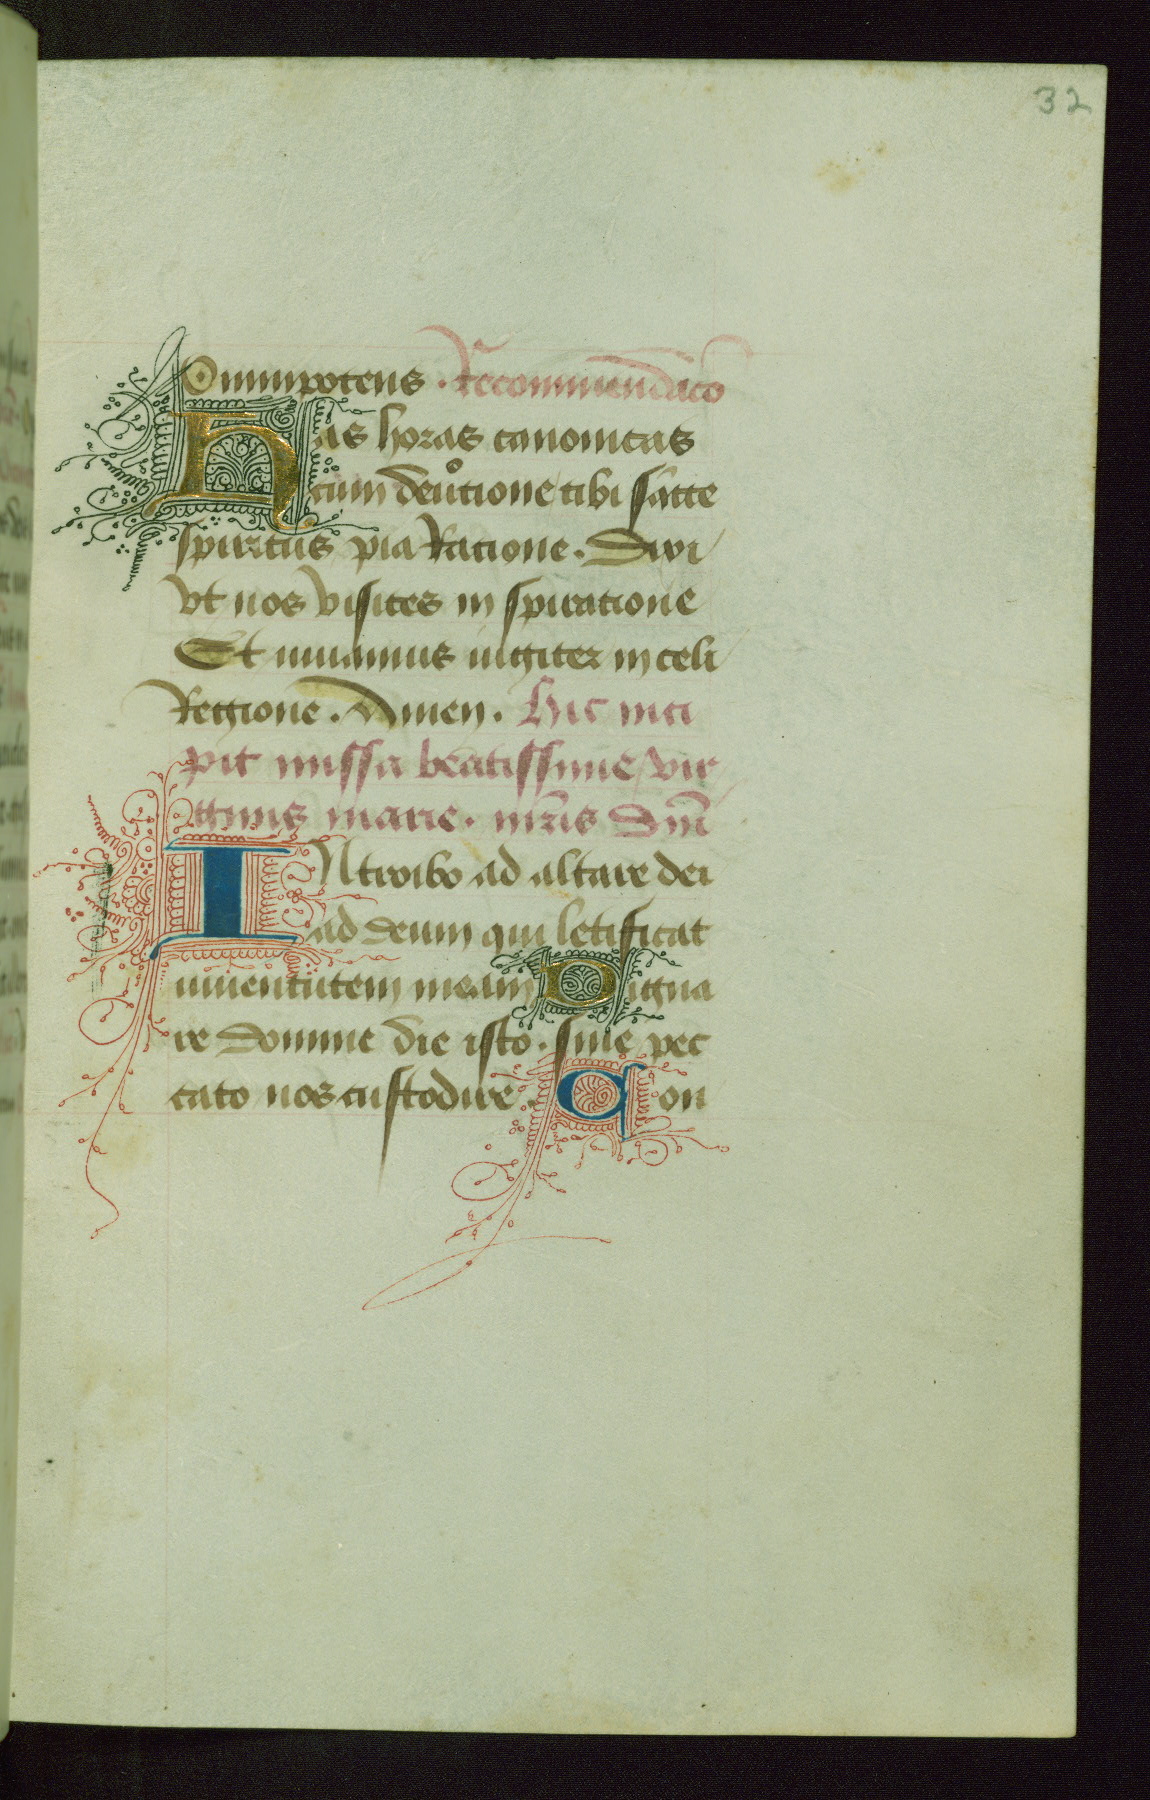 32
Omnipotens. Recommendaco
Has horas canonicas
cum deuᵒtione tibi sācte
spiritus pia Ratione. Dixi
Vt nos visites in spiratione
Et viuamus iugiter in celi
Regione. Amen. Hic inci
pit missa beatissime vir
ginis marie. mr̄is Dn̄i
INtroibo ad altare dei
ad deum qui letificat
iuuentutem meam Digna
re domine die isto. sine pec
cato nos custodire. Con